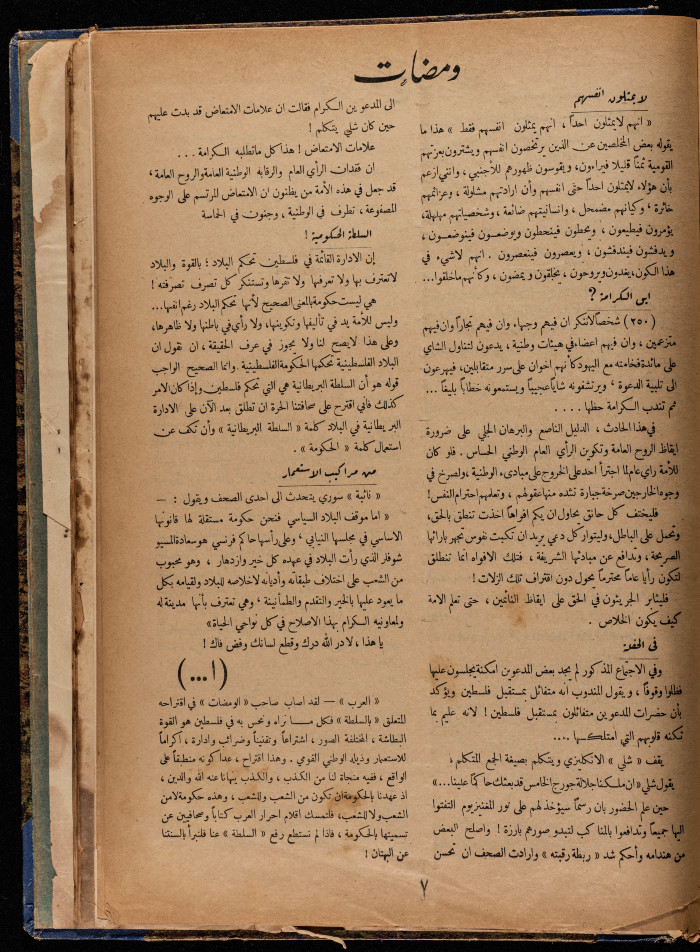 ومضات
لا يمثلون انفسهم
« انهم لايمثلون احداً ، انهم يمثلون انفسهم فقط » هذا ما
يقوله بعض المخلصين عن الذين يرتخصون انفسهم ويشترون بعزتهم
القومية ثمناً قليلا فيراءون، ويقوسون ظهورهم للأجنبي ، وانني ازعم
بأن هؤلاء لايمثلون احداً حتى انفسهم وأن ارادتهم مشلولة ، وعزائمهم
خائرة ، وكيانهم مضمحل ، وانسانيتهم ضائعة ، وشخصياتهم مهلهلة،
يؤمرون فيطيعون ، ويحطون فينحطون ويوضعون فيتوضعون ،
ويدفشون فيندفشون ، ويعصرون فينعصرون . انهم لاشيء في
هذا الكون، يغدون ويروحون ، يخلقون ويمضون ، وكأنهم ماخلقوا...
اين الكرامة ؟
(٢٥٠) شخصاً لاننكر ان فيهم وجهاء وان فيهم تجاراً وان فيهم
متزعمين ، وان فيهم اعضاء في هيئات وطنية ، يدعون لتناول الشاي
على مائدة فخامته مع اليهود كأنهم اخوان على سرر متقابلين، فيهرعون
الى تلبية الدعوة ، ويرتشفونه شاياً عجيباً ويستمعونه خطاباً بليغاً ...
ثم تندب الكرامة حظها . . . .
في هذا الحادث ، الدليل الناصع والبرهان الجلي على ضرورة
ايقاظ الروح العامة وتكوين الرأي العام الوطني الحساس . فلو كان
للأمة رأي عام لما اجترأ احد على الخروج على مبادىء الوطنية ، ولصرخ في
وجوه الخارجين صرخة جبارة تشده منها عقولهم ، وتعلمهم احترام النفس!
فليخنف كل حانق يحاول ان يكم افواهاً اخذت تنطق بالحق،
وتحمل على الباطل، وليتوار كل دعي يريد ان تكبت نفوس تجهر بارائها
الصريحة ، وتدافع عن مبادئها الشريفة ، فتلك الافواه انما تنطلق
لتكون رأياً عاماً محترماً يحول دون اقتراف تلك الزلات !
فليثابر الجريئون في الحق على ايقاظ النائمين ، حتى تعلم الامة
كيف يكون الخلاص .
في الحفلة
وفي الاجتماع المذكور لم يجد بعض المدعوين امكنة يجلسون عليها
فظلوا وقوفاً ، ويقول المندوب انه متفائل بمستقبل فلسطين ويؤكد
بأن حضرات المدعوين متفائلون بمستقبل فلسطين ! لانه عليم بما
تكنه قلوبهم التي امتلكها ....
يقف « شلي » الانكليزي ويتكلم بصيغة الجمع المتكلم ،
يقول شلي «ان ملكنا جلالة جورج الخامس قد بعثك حاكماً علينا...»
حين علم الحضور بان رسماً سيؤخذ لهم على نور المغنيزيوم التفتوا
اليها جميعاً وتدافعوا بالمناكب لتبدو صورهم بارزة ! واصلح البعض
من هندامه وأحكم شد « ربطة رقبته » وارادت الصحف ان تحسن
الى المدعوين الكرام فقالت ان علامات الامتعاض قد بدت عليهم
حين كان شلي يتكلم !
علامات الامتعاض ! هذا كل ماتطلبه الكرامة . . .
ان فقدان الرأي العام والرقابه الوطنية العامة والروح العامة،
قد جعل في هذه الأمة من يظنون ان الامتعاض المرتسم على الوجوه
المصفوعة ، تطرف في الوطنية ، وجنون في الحاسة
السلطة الحكومية !
إن الادارة القائمة في فلسطين تحكم البلاد ؛ بالقوة والبلاد
لاتعترف بها ولا تعرفها ولا تقرها وتستنكر كل تصرف تصرفته !
هي ليست حكومة بالمعنى الصحيح لأنها تحكم البلاد رغم انفها...
وليس للأمة يد في تأليفها وتكوينها، ولا رأي في باطنها ولا ظاهرها،
وعلى هذا لايصح لنا ولا يجوز في عرف الحقيقة ، ان نقول ان
البلاد الفلسطينية تحكمها الحكومة الفلسطينية . وانما الصحيح الواجب
قوله هو أن السلطة البريطانية هي التي تحكم فلسطين وإذا كان الامر
كذلك فاني اقترح على صحافتنا الحرة ان تطلق بعد الآن على الادارة
البريطانية في البلاد كلمة « السلطة البريطانية » وأن تكف عن
استعمال كلمة « الحكومة » .
من مراكيب الاستعمار
« نائبة » سوري يتحدث الى احدى الصحف ويقول : —
« اما موقف البلاد السياسي فنحن حكومة مستقلة لها قانونها
الاساسي في مجلسها النيابي ، وعلى رأسها حاكم فرنسي هو سعادة المسيو
شوفلر الذي رأت البلاد في عهده كل خير وازدهار ، وهو محبوب
من الشعب على اختلاف طبقاته وأديانه لاخلاصه للبلاد ولقيامه بكل
ما يعود عليها بالخير والتقدم والطمأنينة ، وهي تعترف بأنها مدينة له
ولمعاونيه الكرام بهذا الاصلاح في كل نواحي الحياة»
يا هذا ، لا در الله درك وقطع لسانك وفض فاك !
(ا...)
« العرب » — لقد اصاب صاحب « الومضات » في اقتراحه
المتعلق «بالسلطة » فكل مـا نراه ونحس به في فلسطين هو القوة
البطاشة ، المختلفة الصور ، اشتراعاً وتقنيناً وضرائب وادارة ، اكراماً
للاستعمار وذيله الوطني القومي . وهذا اقتراح ، عدا كونه منطبقاً على
الواقع ، ففيه منجاة لنا من الكذب ، والكذب ينهانا عنه الله والدين ،
اذ عهدنا بالحكومة ان تكون من الشعب وللشعب ، وهذه حكومة لامن
الشعب ولا للشعب، فلتمسك اقلام احرار العرب كتاباً وصحافيين عن
تسميتها بالحكومة ، فاذا لم نستطع رفع « السلطة » عنا فلنبرأ بالسنتنا
عن البهتان !
٧